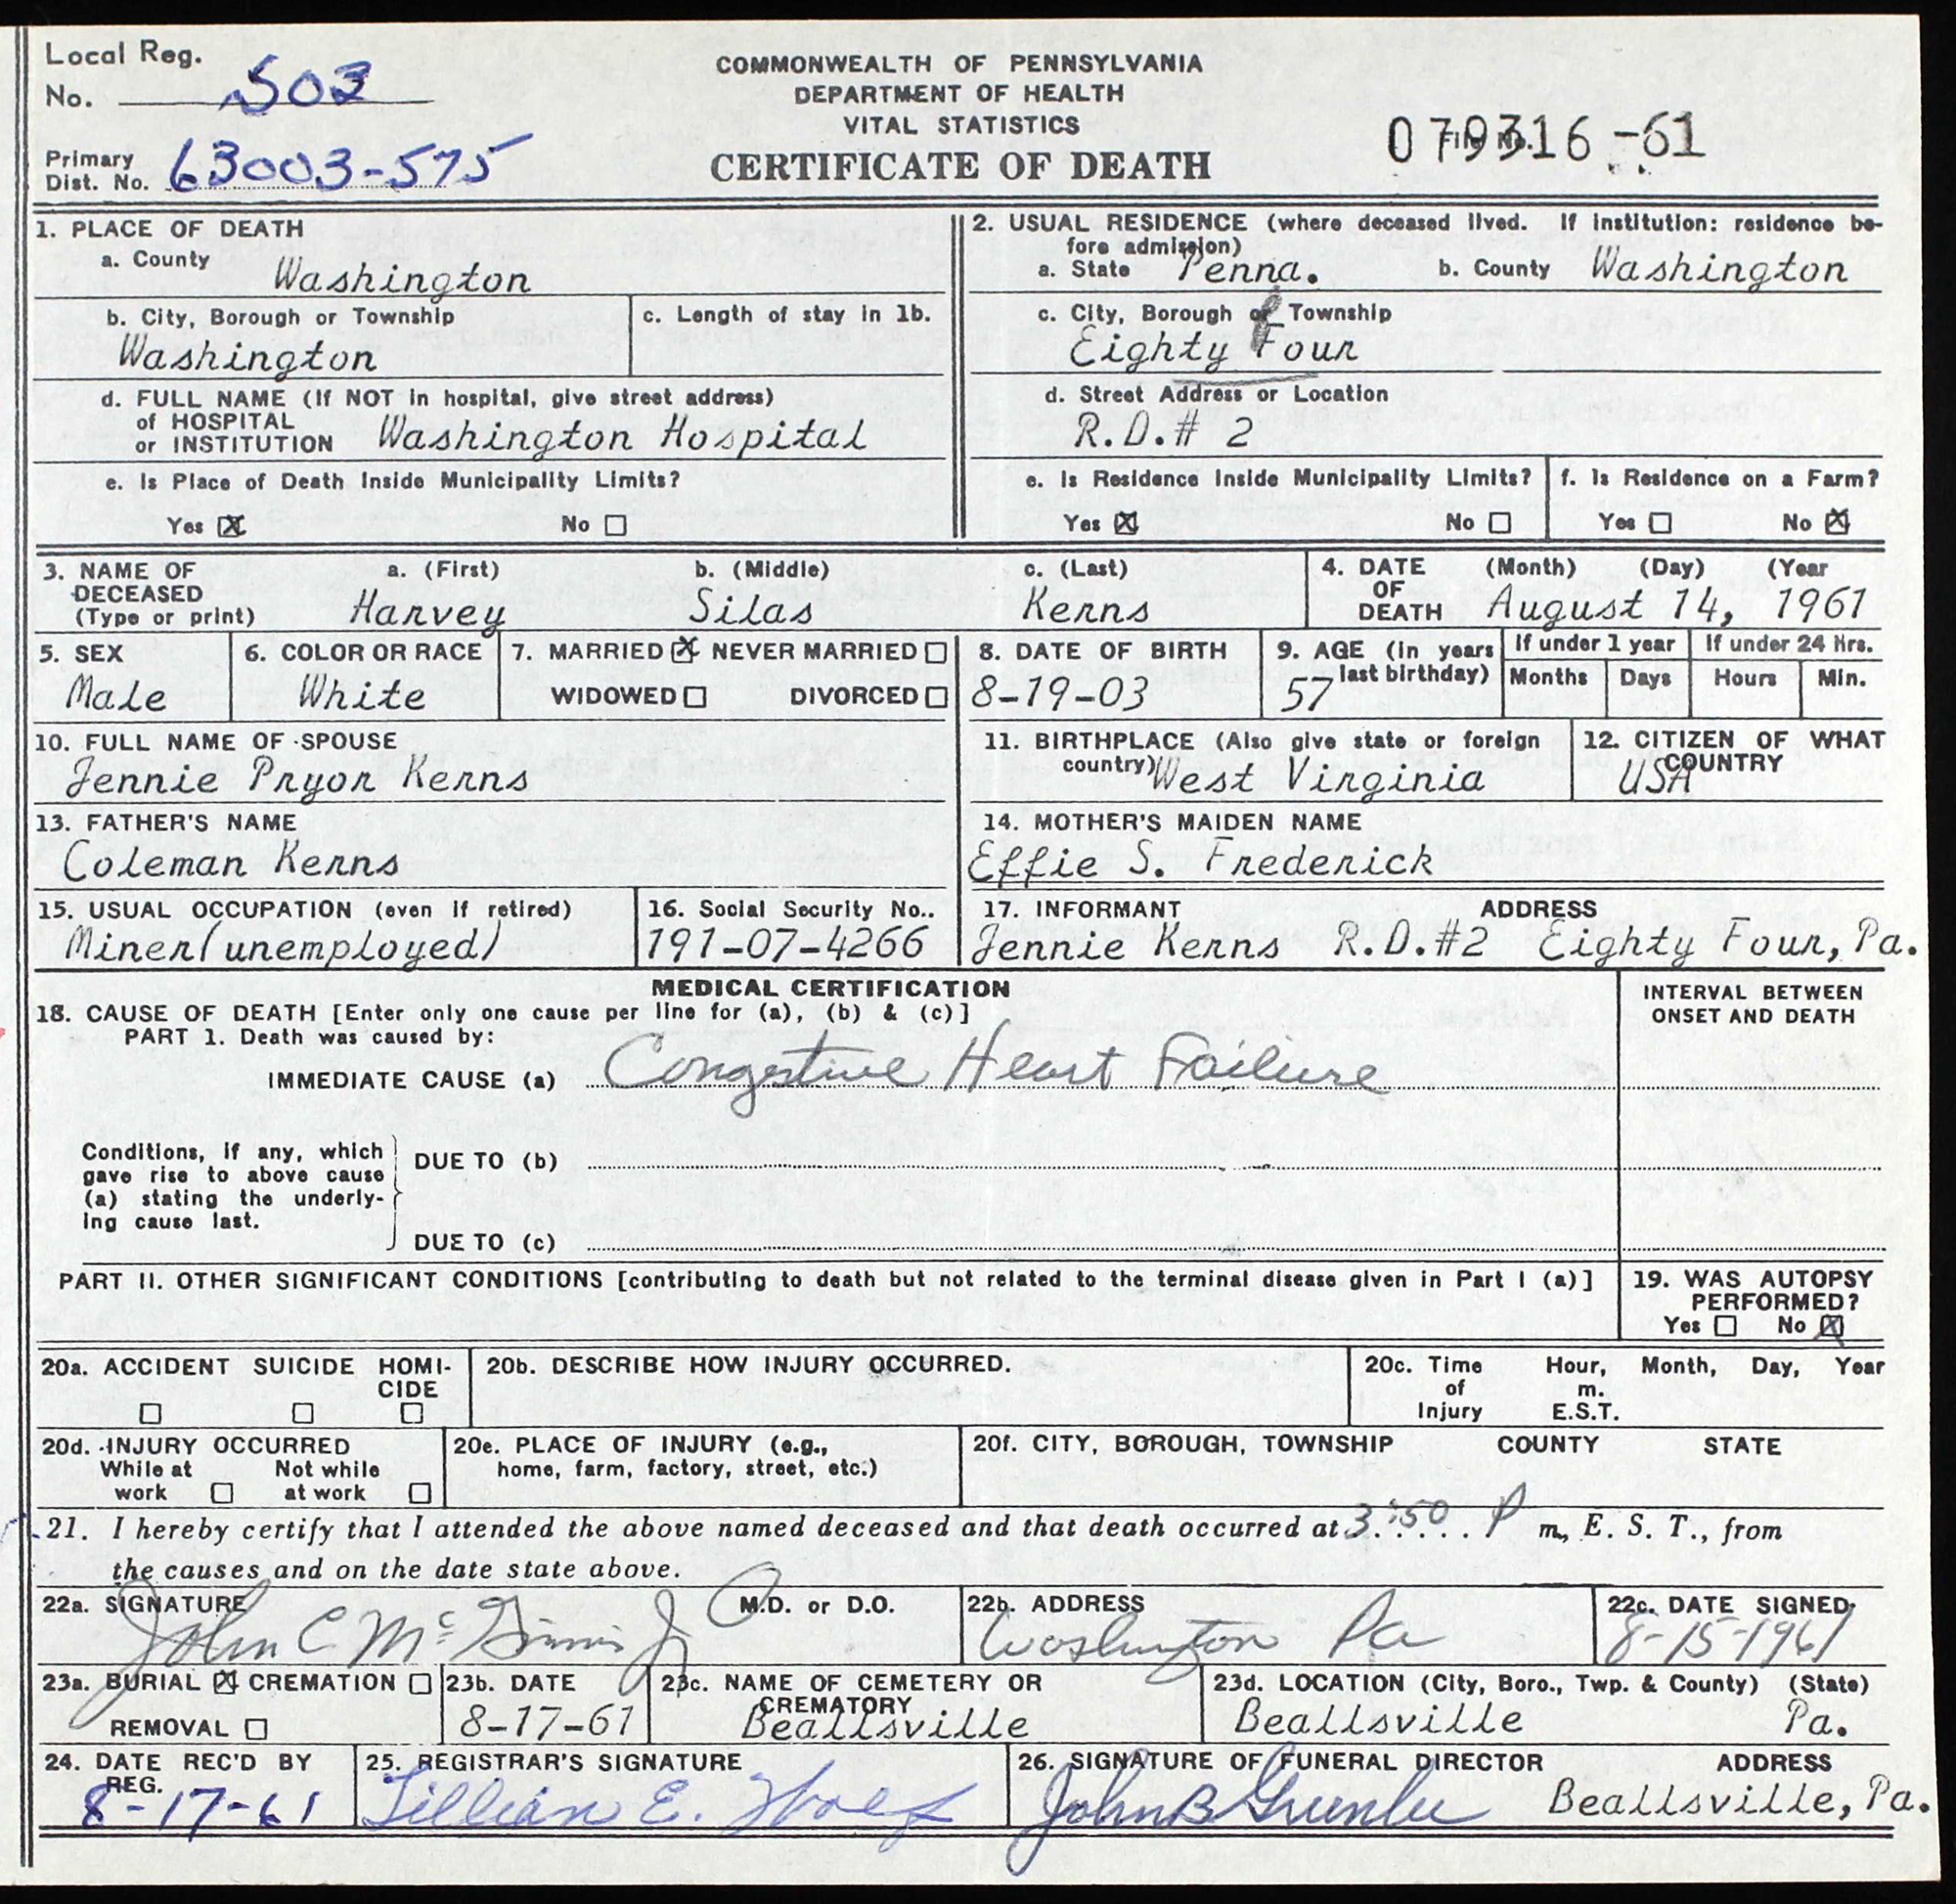 Local Reg.
No. 503
Primary
Dist. No. 63003-575
COMMONWEALTH OF PENNSYLVANIA
DEPARTMENT OF HEALTH
VITAL STATISTICS
CERTIFICATE OF DEATH
File No.
079316-61
1. PLACE OF DEATH
a. County Washington
b. City, Borough or Township
Washington
c. Length of stay in 1b.
d. FULL NAME (If NOT in hospital, give street address)
of HOSPITAL
or INSTITUTION Washington Hospital
e. Is Place of Death Inside Municipality Limits?
Yes ☒ No ☐
2. USUAL RESIDENCE (where deceased lived. If institution: residence be-
fore admission)
a. State Penna. b. County Washington
c. City, Borough or Township
Eighty Four
d. Street Address or Location
R.D.# 2
e. Is Residence Inside Municipality Limits?
Yes ☒ No ☐
f. Is Residence on a Farm?
Yes ☐ No ☒
3. NAME OF DECEASED (Type or print)
a. (First) b. (Middle) c. (Last)
Harvey Silas Kerns
4. DATE OF DEATH (Month) (Day) (Year
August 14, 1961
5. SEX
Male
6. COLOR OR RACE
White
7. MARRIED ☒ NEVER MARRIED ☐
WIDOWED ☐ DIVORCED ☐
8. DATE OF BIRTH
8-19-03
9. AGE (in years
last birthday)
57
If under 1 year
Months Days
If under 24 hrs.
Hours Min.
10. FULL NAME OF SPOUSE
Jennie Pryor Kerns
11. BIRTHPLACE (Also give state or foreign
country) West Virginia
12. CITIZEN OF WHAT
COUNTRY
USA
13. FATHER'S NAME
Coleman Kerns
14. MOTHER'S MAIDEN NAME
Effie S. Frederick
15. USUAL OCCUPATION (even if retired)
Miner(unemployed)
16. Social Security No..
191-07-4266
17. INFORMANT ADDRESS
Jennie Kerns R.D.#2 Eighty Four, Pa.
MEDICAL CERTIFICATION
18. CAUSE OF DEATH [Enter only one cause per line for (a), (b) & (c)]
PART 1. Death was caused by:
IMMEDIATE CAUSE (a) Congestive Heart Failure
INTERVAL BETWEEN
ONSET AND DEATH
Conditions, if any, which
gave rise to above cause
(a) stating the underly-
ing cause last.
DUE TO (b)
DUE TO (c)
PART II. OTHER SIGNIFICANT CONDITIONS [contributing to death but not related to the terminal disease given in Part I (a)]
19. WAS AUTOPSY
PERFORMED?
Yes ☐ No ☒
20a. ACCIDENT SUICIDE HOMI-
CIDE
☐ ☐ ☐
20b. DESCRIBE HOW INJURY OCCURRED.
20c. Time Hour, Month, Day, Year
of m.
Injury E.S.T.
20d. INJURY OCCURRED
While at Not while
work ☐ at work ☐
20e. PLACE OF INJURY (e.g.,
home, farm, factory, street, etc.)
20f. CITY, BOROUGH, TOWNSHIP COUNTY STATE
21. I hereby certify that I attended the above named deceased and that death occurred at 3:50 P m., E. S. T., from
the causes and on the date state above.
22a. SIGNATURE M.D. or D.O.
John C McGinnis Jr
22b. ADDRESS
Washington Pa
22c. DATE SIGNED
8-15-1961
23a. BURIAL ☒ CREMATION ☐
REMOVAL ☐
23b. DATE
8-17-61
23c. NAME OF CEMETERY OR
CREMATORY
Beallsville
23d. LOCATION (City, Boro., Twp. & County) (State)
Beallsville Pa.
24. DATE REC'D BY
REG.
8-17-61
25. REGISTRAR'S SIGNATURE
Lillian E.
26. SIGNATURE OF FUNERAL DIRECTOR ADDRESS
John B Greenlee Beallsville, Pa.